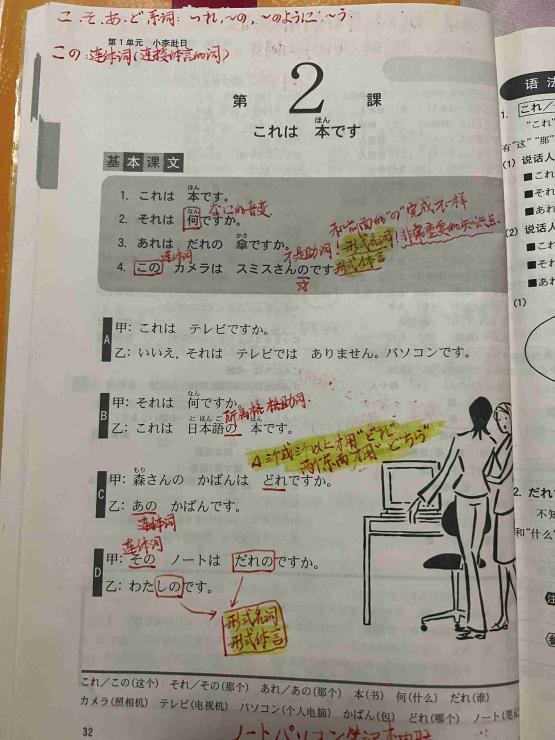 こ、そ、あ、ど系词: ～れ, ～の, ～のように, ～う
第1单元 小李赴日
この:连体词(连接体言的词)
第 2 課
ほん
これは 本です
基本课文
ほん
1. これは 本です。
なん
2. それは 何ですか。
なに的音变.
和前面的"の"完成不一样
かさ
3. あれは だれの 傘ですか。
不是助词! 形式名词! 非常重要的知识点.
连体词
4. この カメラは スミスさんのです。
形式体言
A
甲: これは テレビですか。
乙: いいえ, それは テレビでは ありません。パソコンです。
B
なん
甲: それは 何ですか。
所属格 格助词.
に ほん ご ほん
乙: これは 日本語の 本です。
△三个或三个以上才用"どれ"
两个东西才用"どちら"
C
もり
甲: 森さんの かばんは どれですか。
乙: あの かばんです。
连体词
连体词
D
甲: その ノートは だれのですか。
乙: わたしのです。
形式名词
形式体言
これ/この(这个) それ/その(那个) あれ/あの(那个) 本(书) 何(什么) だれ(谁)
カメラ(照相机) テレビ(电视机) パソコン(个人电脑) かばん(包) どれ(哪个) ノート(笔记
32
ノートパソコン 笔记本电脑
语法
1. これ/
"これ"
有"这""那"
(1) 说话人
■これ
■それ
■あれ
(2) 说话人
■これ
■それ
■あれ
(1)
2. だれ
不知
和"什么
注
参